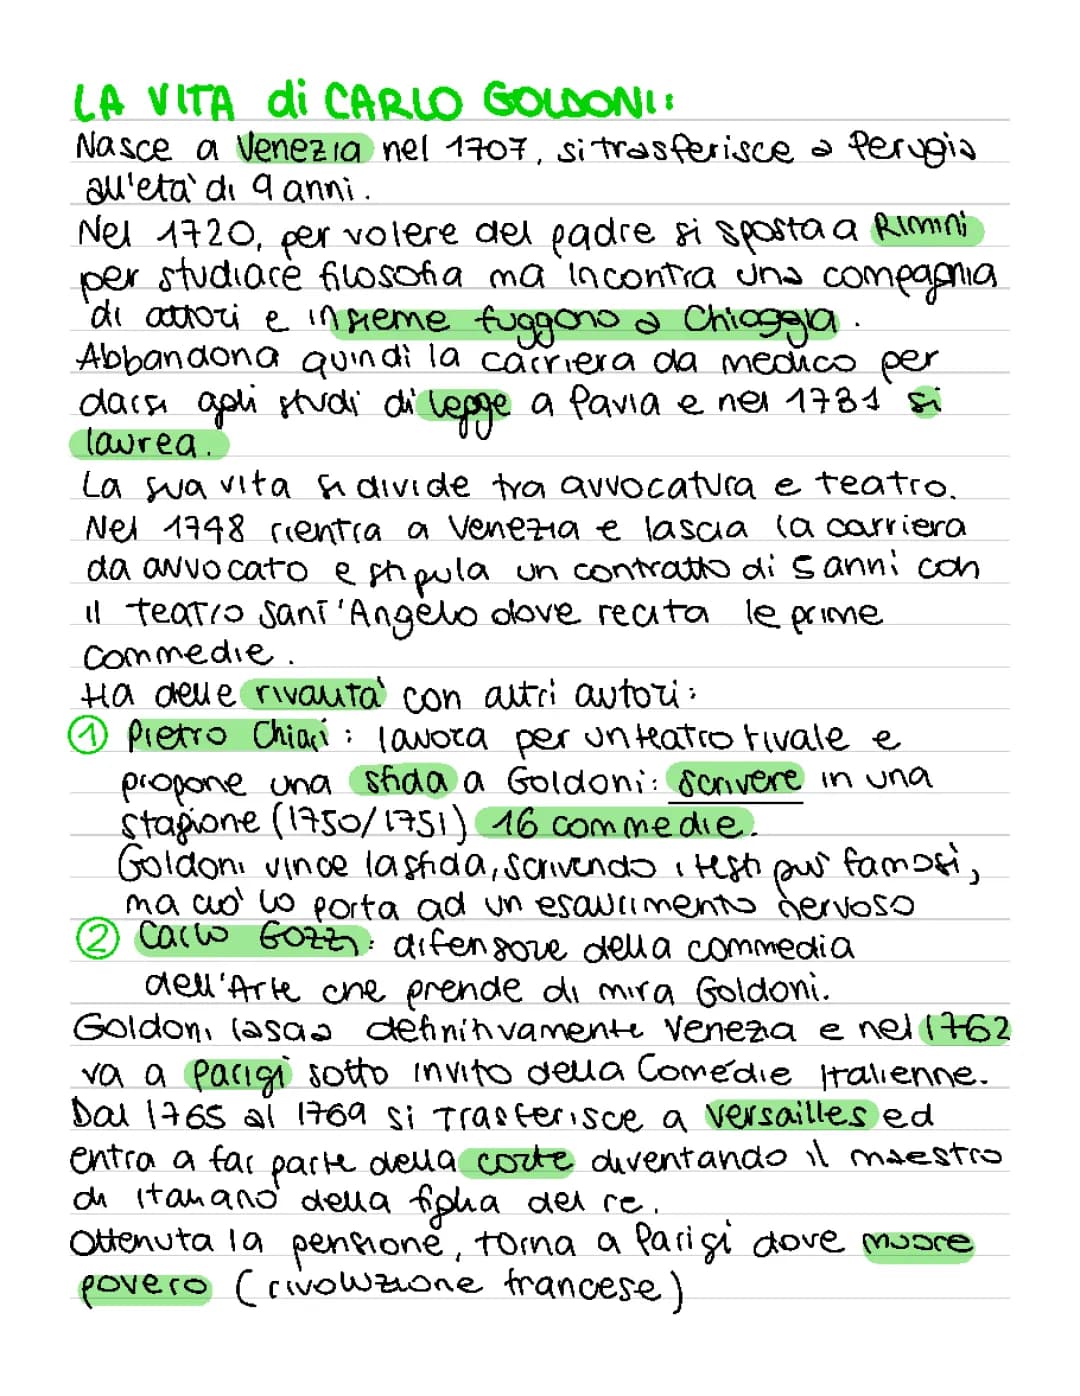 LA VITA di CARLO GOLDONI:
Nasce a Venezia nel 1707, si trasferisce a Perugia
all'età di 9 anni.
Nel 1720, per volere del padre si sposta a Rimini
per studiare filosofia ma incontra una compagnia
di attori e insieme fuggono a Chioggia.
Abbandona quindi la carriera da medico per
darsi agli studi di legge a Pavia e nel 1731 si
laurea.
La sua vita si divide tra avvocatura e teatro.
Nel 1748 rientra a Venezia e lascia la carriera
da avvocato e stipula un contratto di 5 anni con
il teatro Sant'Angelo dove recita le prime
commedie.
Ha delle rivalità con altri autori:
1 Pietro Chiari: lavora per un teatro rivale e
propone una sfida a Goldoni: scrivere in una
stagione (1750/1751) 16 commedie.
Goldoni vince la sfida, scrivendo i testi più famosi,
ma ciò lo porta ad un esaurimento nervoso
2 Carlo Gozzi: difensore della commedia
dell'Arte che prende di mira Goldoni.
Goldoni lascia definitivamente Venezia e nel 1762
va a Parigi sotto invito della Comédie Italienne.
Dal 1765 al 1769 si trasferisce a Versailles ed
entra a far parte della corte diventando il maestro
di italiano della figlia del re.
Ottenuta la pensione, torna a Parigi dove muore
povero (rivoluzione francese)